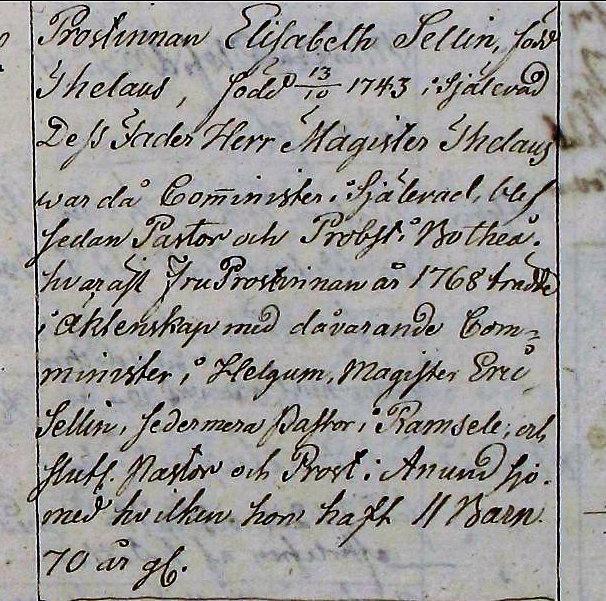 Prostinnan Elisabeth Sellin, född
Thelaus, född 13/10 1743 i Själevad
Dess Fader Herr Magister Thelaus
war då Com̅inister i Själevad, blef
sedan Pastor och Probst i Botheå.
hwaräst Fru Prostinnan år 1768 trädde
i Äktenskap med dåvarande Com=
minister i Helgum, Magister Eric
Sellin, sedermera Pastor i Ramsele, och
slutl. Pastor och Prost i Anundsjö.
med hvilken hon haft 11 Barn.
70 år gl.